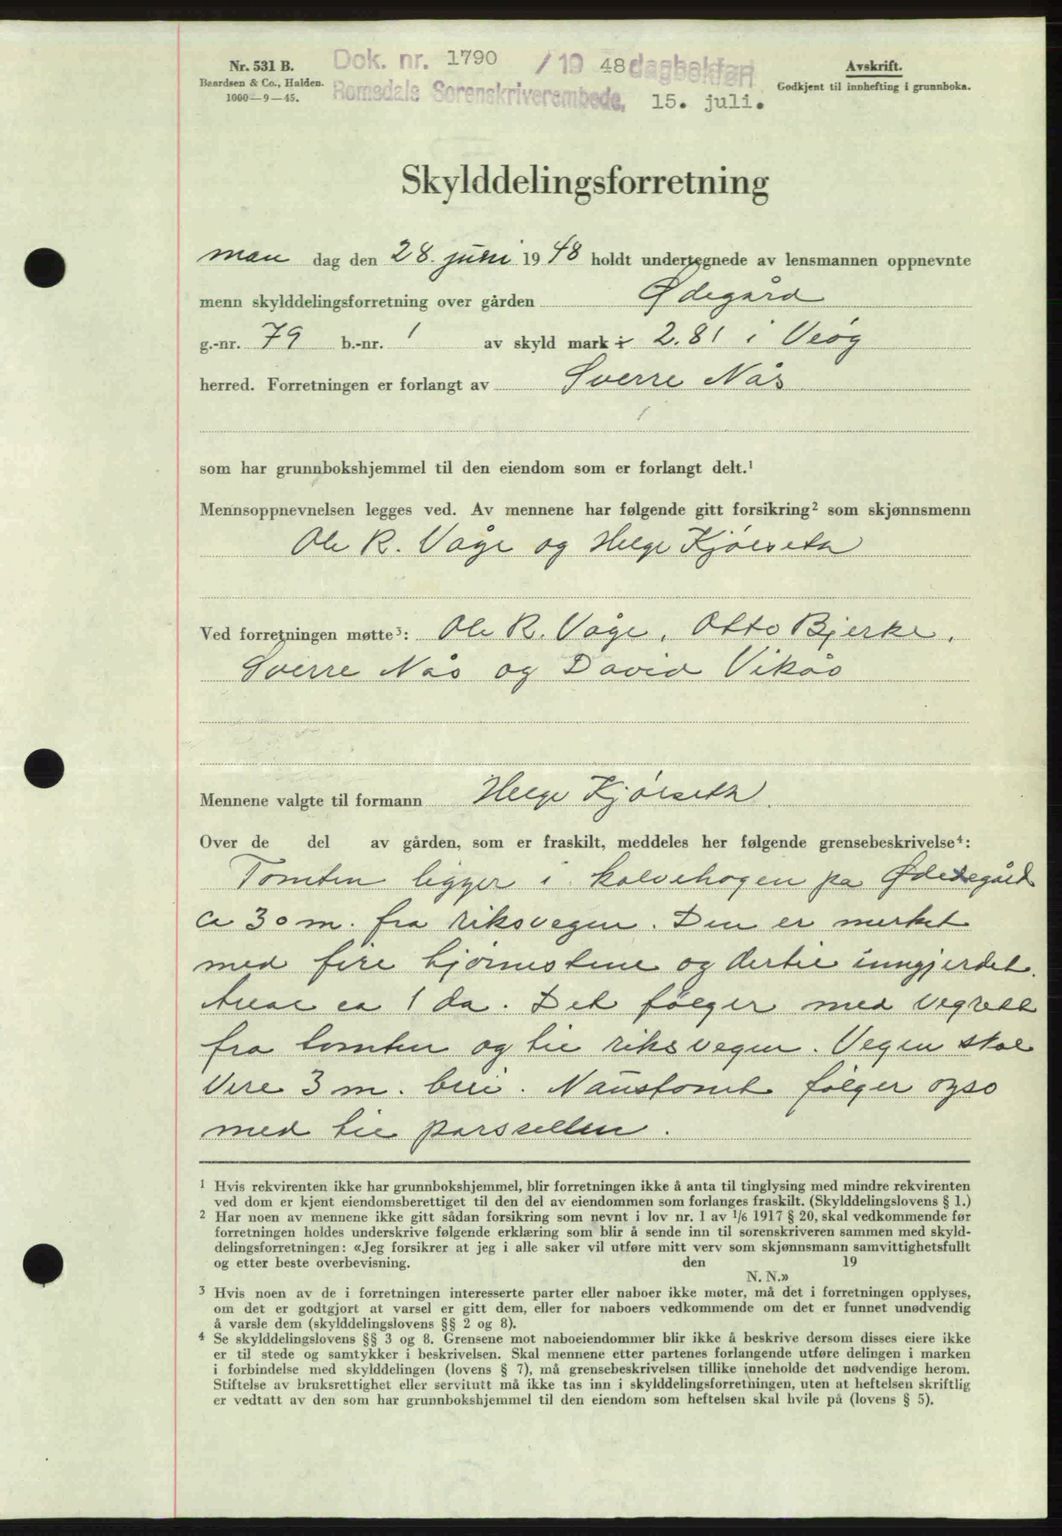 Nr. 531 B.
Baardsen & Co., Halden.
1000—9—45.
Dok. nr. 1790 /19 48 dagbokført
Romsdals Sorenskriverembede, 15. juli.
Avskrift.
Godkjent til innhefting i grunnboka.
Skylddelingsforretning
man dag den 28. juni 1948 holdt undertegnede av lensmannen oppnevnte
menn skylddelingsforretning over gården Ødegård
g.-nr. 79 b.-nr. 1 av skyld mark 2.81 i Veøy
herred. Forretningen er forlangt av Sverre Nås
som har grunnbokshjemmel til den eiendom som er forlangt delt.¹
Mennsoppnevnelsen legges ved. Av mennene har følgende gitt forsikring² som skjønnsmenn
Ole R. Våge og Helge Kjørseth
Ved forretningen møtte³: Ole R. Våge, Otto Bjerke,
Sverre Nås og David Vikås
Mennene valgte til formann Helge Kjørseth
Over de del av gården, som er fraskilt, meddeles her følgende grensebeskrivelse⁴:
Tomten ligger i kalvehagen på Ødegård
ca 30 m. fra riksvegen. Den er merket
med fire hjørnestene og dertil inngjerdet.
Areal ca 1 da. Det følger med vegrett
fra tomten og til riksvegen. Vegen skal
vere 3 m. bred. Naustomt følger også
med til parsellen.
¹ Hvis rekvirenten ikke har grunnbokshjemmel, blir forretningen ikke å anta til tinglysing med mindre rekvirenten
ved dom er kjent eiendomsberettiget til den del av eiendommen som forlanges fraskilt. (Skylddelingslovens § 1.)
² Har noen av mennene ikke gitt sådan forsikring som nevnt i lov nr. 1 av ¹/6 1917 § 20, skal vedkommende før
forretningen holdes underskrive følgende erklæring som blir å sende inn til sorenskriveren sammen med skyld-
delingsforretningen: «Jeg forsikrer at jeg i alle saker vil utføre mitt verv som skjønnsmann samvittighetsfullt
og etter beste overbevisning. den 19
N. N.»
³ Hvis noen av de i forretningen interesserte parter eller naboer ikke møter, må det i forretningen opplyses,
om det er godtgjort at varsel er gitt dem, eller for naboers vedkommende om det er funnet unødvendig
å varsle dem (skylddelingslovens §§ 2 og 8).
⁴ Se skylddelingslovens §§ 3 og 8. Grensene mot naboeiendommer blir ikke å beskrive dersom disses eiere ikke
er til stede og samtykker i beskrivelsen. Skal mennene etter partenes forlangende utføre delingen i marken
i forbindelse med skylddelingen (lovens § 7), må grensebeskrivelsen tillike inneholde det nødvendige herom.
Stiftelse av bruksrettighet eller servitutt må ikke tas inn i skylddelingsforretningen, uten at heftelsen skriftlig
er vedtatt av den som har grunnbokshjemmel til den eiendom som heftelsen skal hvile på (lovens § 5).